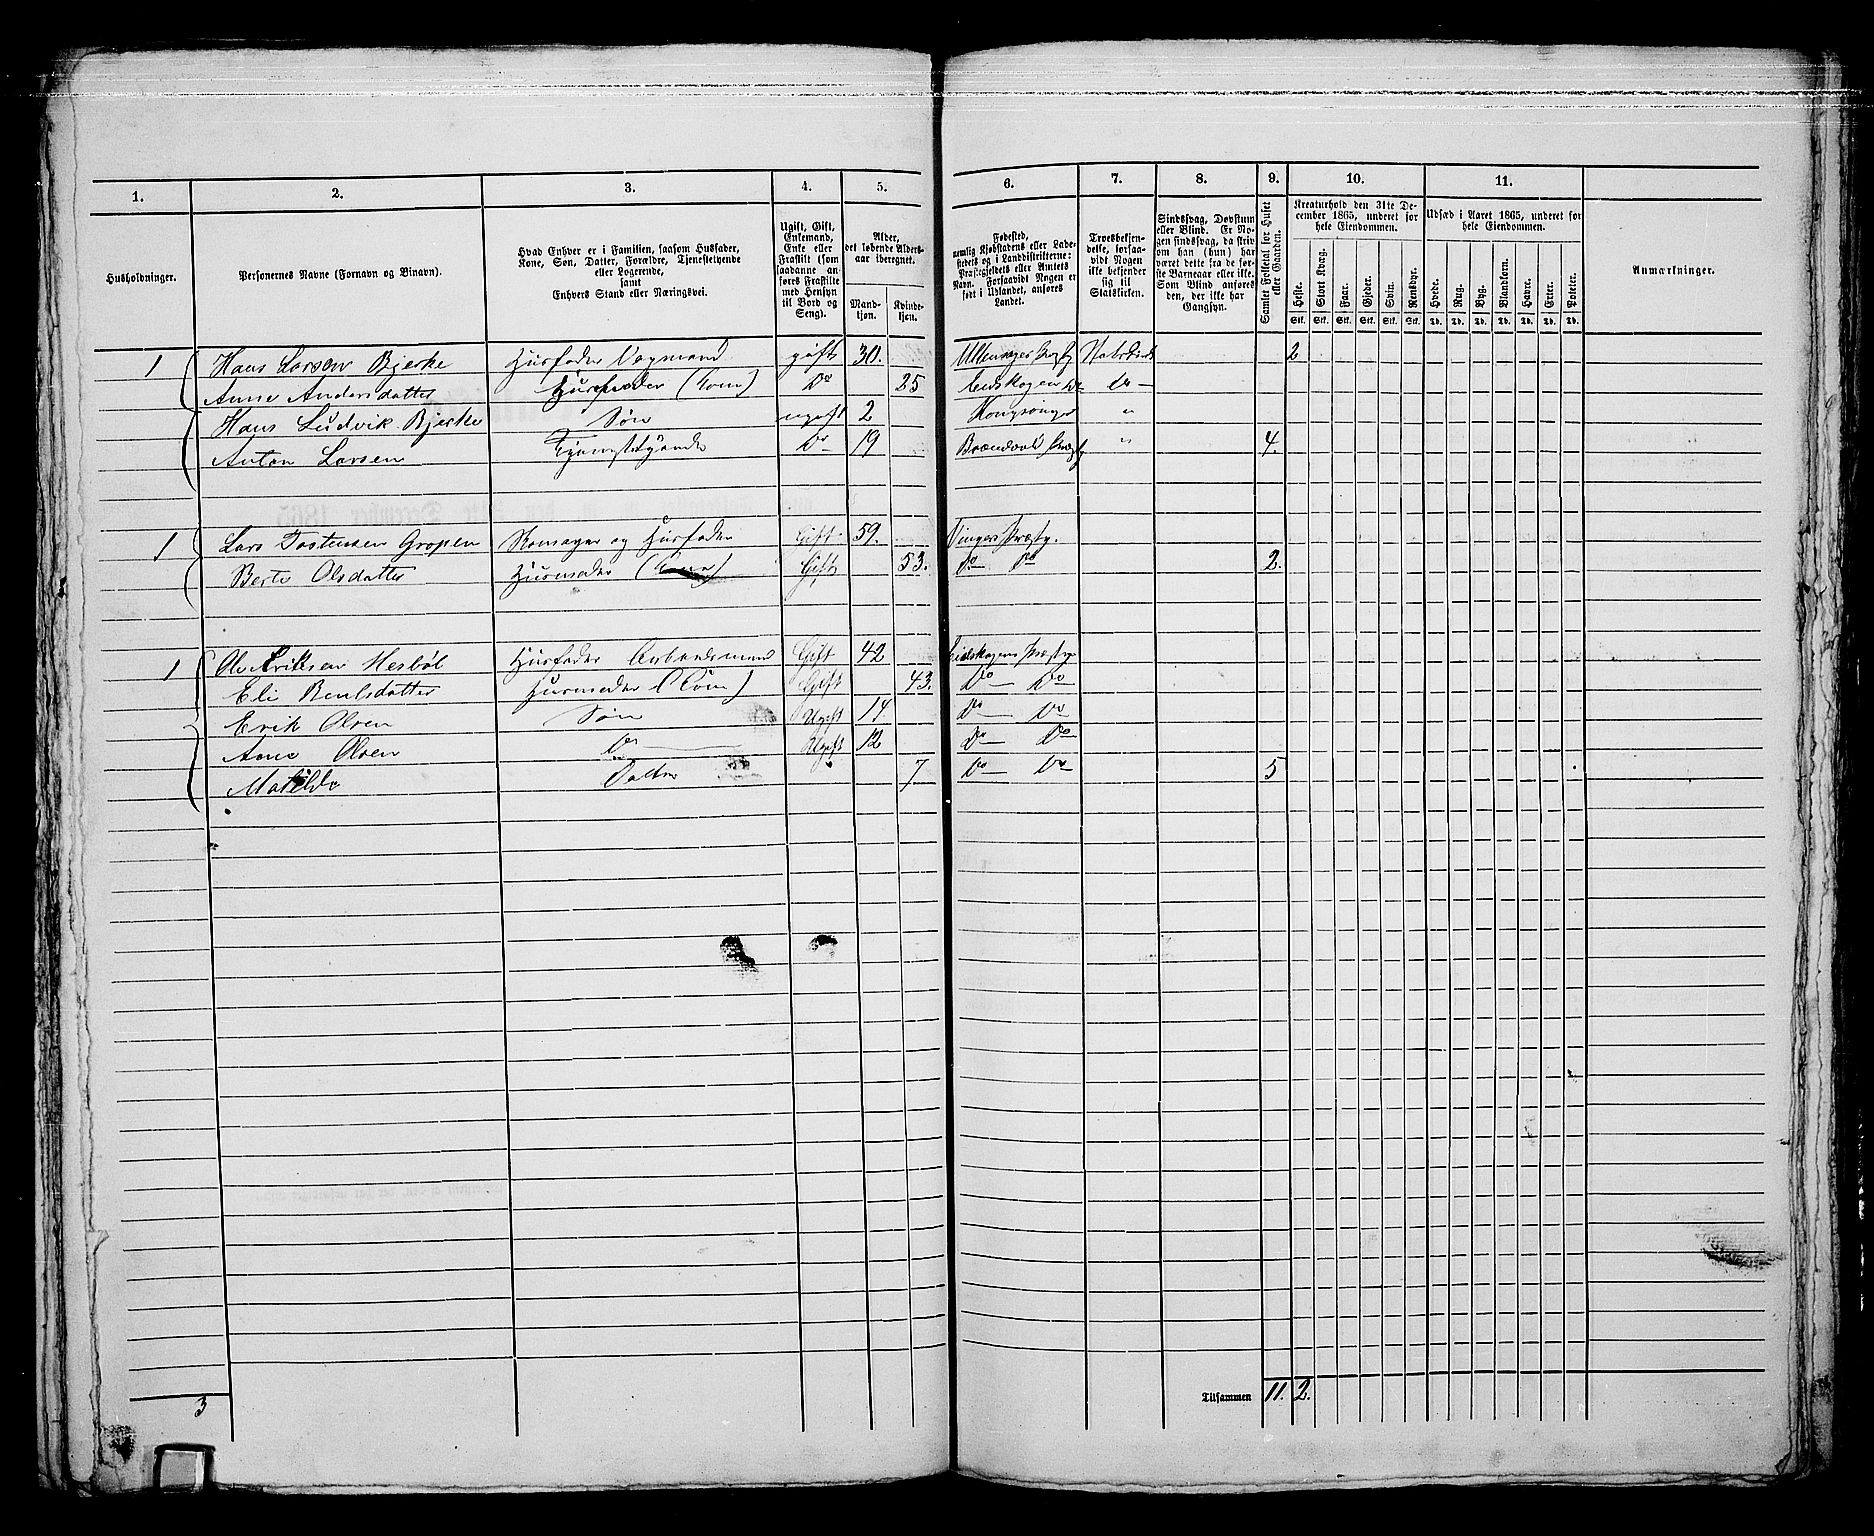 1. 2. 3. 4. 5. 6. 7. 8. 9. 10. 11.
Husholdninger.
Personernes Navne (Fornavn og Binavn).
Hvad Enhver er i Familien, saasom Husfader,
Kone, Søn, Datter, Forældre, Tjenestetyende
eller Logerende,
samt
Enhvers Stand eller Næringsvei.
Ugift, Gift,
Enkemand,
Enke eller
Fraskilt (som
saadanne an-
føres Fraskilte
med Hensyn
til Bord og
Seng).
Alder,
det løbende Alders-
aar iberegnet.
Mand-
kjøn.
Kvinde-
kjøn.
Fødested,
nemlig Kjøbstadens eller Lade-
stedets og i Landdistrikterne:
Præstegjeldets eller Amtets
Navn. Forsaavidt Nogen er
født i Udlandet, anføres
Landet.
Troesbekjen-
delse, forsaa-
vidt Nogen
ikke bekjender
sig til
Statskirken.
Sindssvag, Døvstum
eller Blind. Er No-
gen sindssvag, da skriv
om han (hun) har
været dette fra de før-
ste Barneaar eller ikke.
Som Blind anføres
den, der ikke har
Gangsyn.
Samlet Folketal for Huset
eller Gaarden.
Kreaturhold den 31te De-
cember 1865, underet for
hele Eiendommen.
Heste. Stort Kvæg. Faar. Gjeder. Svin. Rensdyr.
Stk. Stk. Stk. Stk. Stk. Stk.
Udsæd i Aaret 1865, underet for
hele Eiendommen.
Hvede. Rug. Byg. Blandkorn. Havre. Erter. Poteter.
Td. Td. Td. Td. Td. Td. Td.
Anmærkninger.
1 Hans Larsen Bjerke Husfader Vognmand gift 30. Ullensager Præstg 2
Anne Andersdatter (Kone) Do 25 Eidskogen Do Do
Hans Ludvik Bjerke Søn ugift 2 Kongsvinger "
Anton Larsen Tjenestetyende Do 19 Brandvold Præstg " 4.
1 Lars Tostensen Gropen og Husfader Gift 59. Vinger Præstg.
Berte Olsdatter Husmoder (Kone) Gift 53. Do Do 2.
1 Ole Eriksen Hesbøl Husfader Arbeidsmand Gift 42 Eidskogens Præstg
Eli Bentsdatter Husmoder (Kone) Gift 43. Do Do
Erik Olsen Søn Ugift 14. Do Do
Arne Olsen Do Ugift 12 Do Do
Matilde Datter 7 Do Do 5
3 Tilsammen 11. 2.